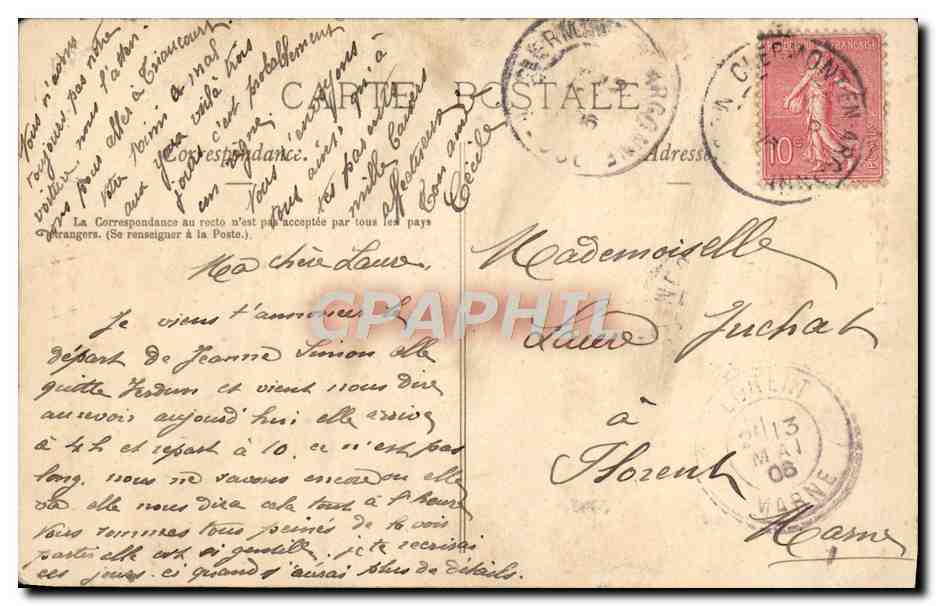 CARTE POSTALE
Correspondance.
Adresse
La Correspondance au recto n'est pas acceptée par tous les pays
étrangers. (Se renseigner à la Poste.)
Ma chère Laure,
Je viens t'annoncer le
départ de Jeanne Simon elle
quitte Verdun et vient nous dire
au revoir aujourd'hui elle arrive
à 4h et repart à 10. ce n'est pas
long. nous ne savons encore où elle
va elle nous dira cela tout à l'heure
nous sommes tous peinés de la voir
partir elle est si gentille. je te récrirai
ces jours-ci quand j'aurai plus de détails.
Vous n'aurez
toujours pas notre
voiture nous l'
pas allés à Triaucourt
votre a mal
aux yeux voilà trois
jours c'est probablement
un
Nous t'envoyons
tous ainsi qu'à
tes parents
mille baisers
affectueux
Ton amie
Cécile
Mademoiselle
Laure Juchat
à
Florent
Marne
CLERMONT-EN-ARGONNE
CLERMONT-EN-ARGONNE
RÉPUBLIQUE FRANÇAISE
10c
FLORENT
13
MAI
06
MARNE
CPAPHIL